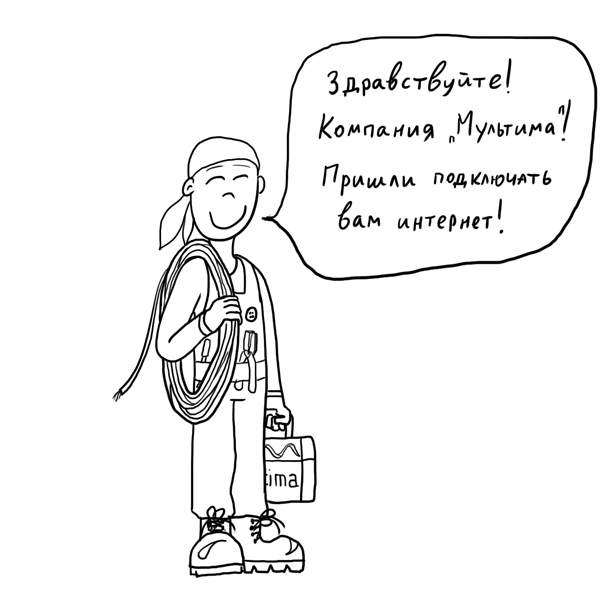 Здравствуйте!
Компания „Мультима"!
Пришли подключать
вам интернет!
tima